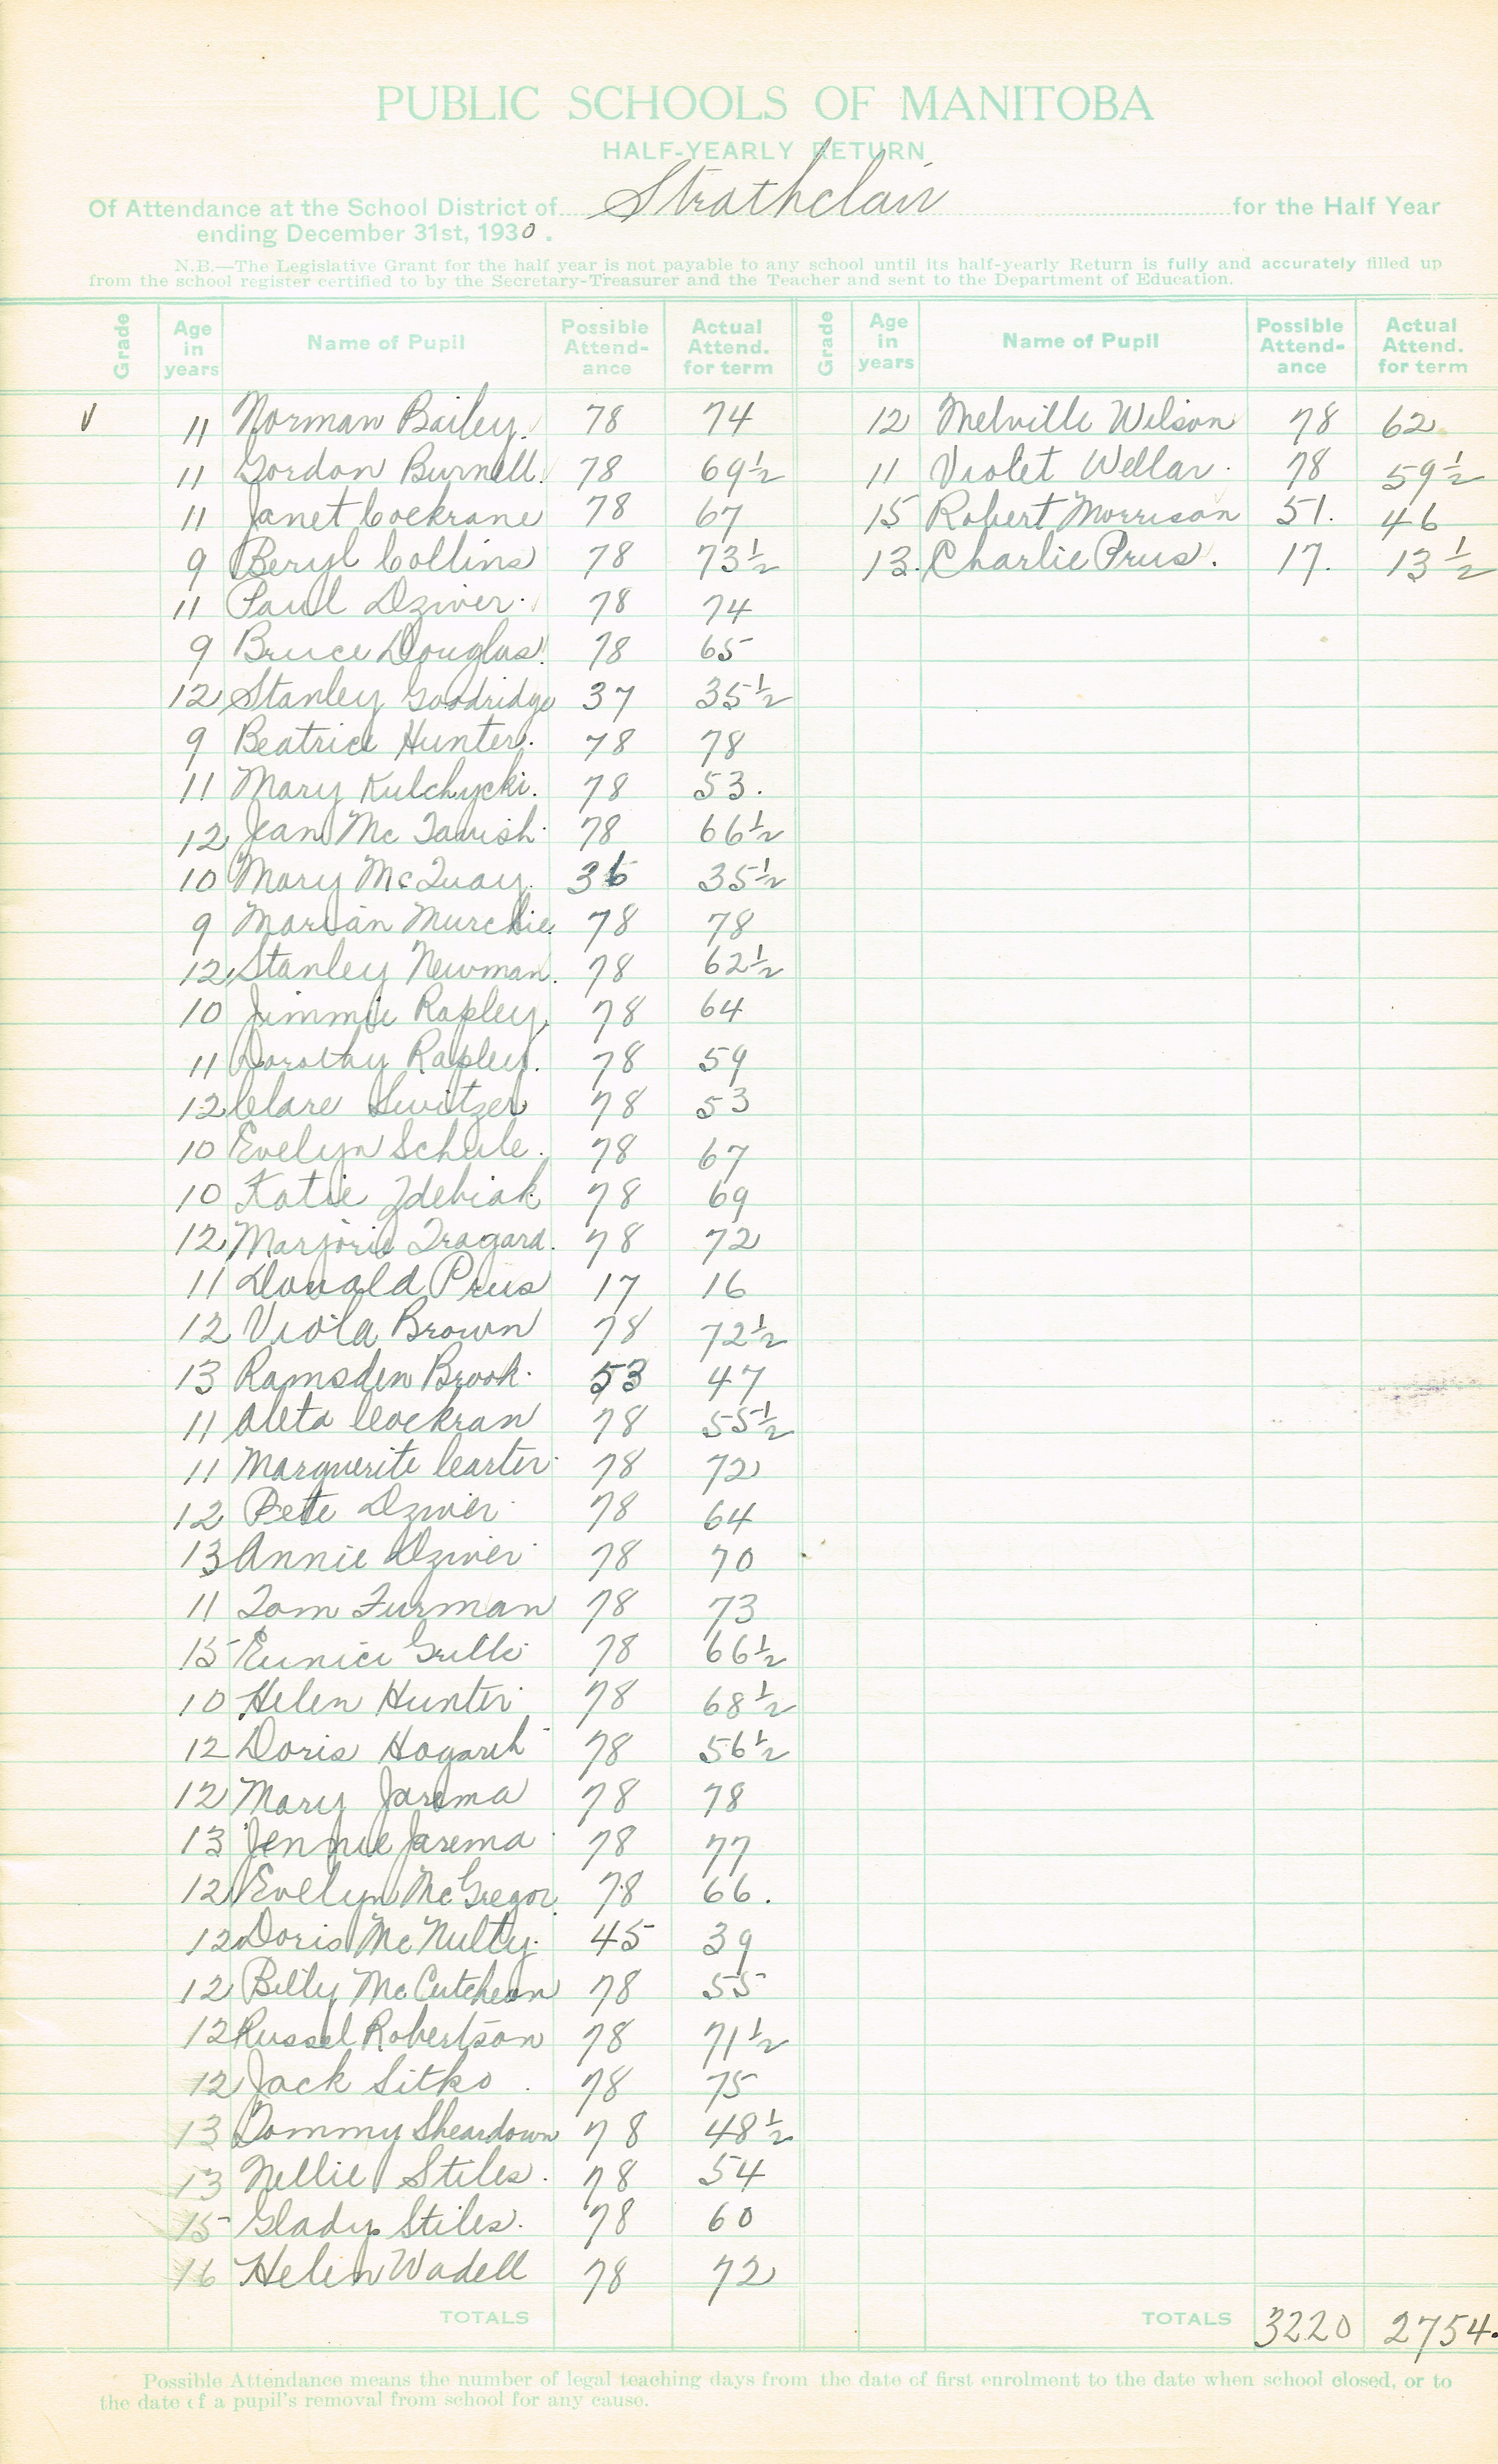 PUBLIC SCHOOLS OF MANITOBA
HALF-YEARLY RETURN
Of Attendance at the School District of Strathclair for the Half Year
ending December 31st, 1930.
N.B.—The Legislative Grant for the half year is not payable to any school until its half-yearly Return is fully and accurately filled up
from the school register certified to by the Secretary-Treasurer and the Teacher and sent to the Department of Education.
Grade Age in years Name of Pupil Possible Attend-ance Actual Attend. for term Grade Age in years Name of Pupil Possible Attend-ance Actual Attend. for term
V 11 Norman Bailey. 78 74 12 Melville Wilson 78 62
11 Gordon Burnell. 78 69½ 11 Violet Wellar. 78 59½
11 Janet Cockrane 78 67 15 Robert Morrison 51. 46
9 Beryl Collins 78 73½ 13. Charlie Prus. 17. 13½
11 Paul Dziver. 78 74
9 Bruce Douglas. 78 65
12 Stanley Goodridge 37 35½
9 Beatrice Hunter. 78 78
11 Mary Kulchycki. 78 53.
12 Jean McTavish. 78 66½
10 Mary McQuay. 36 35½
9 Marian Murchie. 78 78
12 Stanley Newman. 78 62½
10 Jimmie Rapley, 78 64
11 Dorothy Rapley. 78 59
12 Clare Switzer 78 53
10 Evelyn Schule. 78 67
10 Katie Zdebiak 78 69
12 Marjorie Tragard. 78 72
11 Donald Prus 17 16
12 Viola Brown 78 72½
13 Ramsden Brook. 53 47
11 Aleta Cockran 78 55½
11 Marguerite Carter. 78 72
12 Pete Dziver. 78 64
13 Annie Dziver. 78 70
11 Tom Furman 78 73
15 Eunice 78 66½
10 Helen Hunter. 78 68½
12 Doris Hogarth 78 56½
12 Mary Jarema 78 78
13 Jennie Jarema. 78 77
12 Evelyn McGregor. 78 66.
12 Doris McNulty. 45 39
12 Billy McCutcheon 78 55
12 Russel Robertson 78 71½
12 Jack Sitko. 78 75
13 Tommy Sheardown 78 48½
13 Nellie Stiles. 78 54
15 Gladys Stiles. 78 60
16 Helen Wadell 78 72
TOTALS TOTALS 3220 2754.
Possible Attendance means the number of legal teaching days from the date of first enrolment to the date when school closed, or to
the date of a pupil's removal from school for any cause.